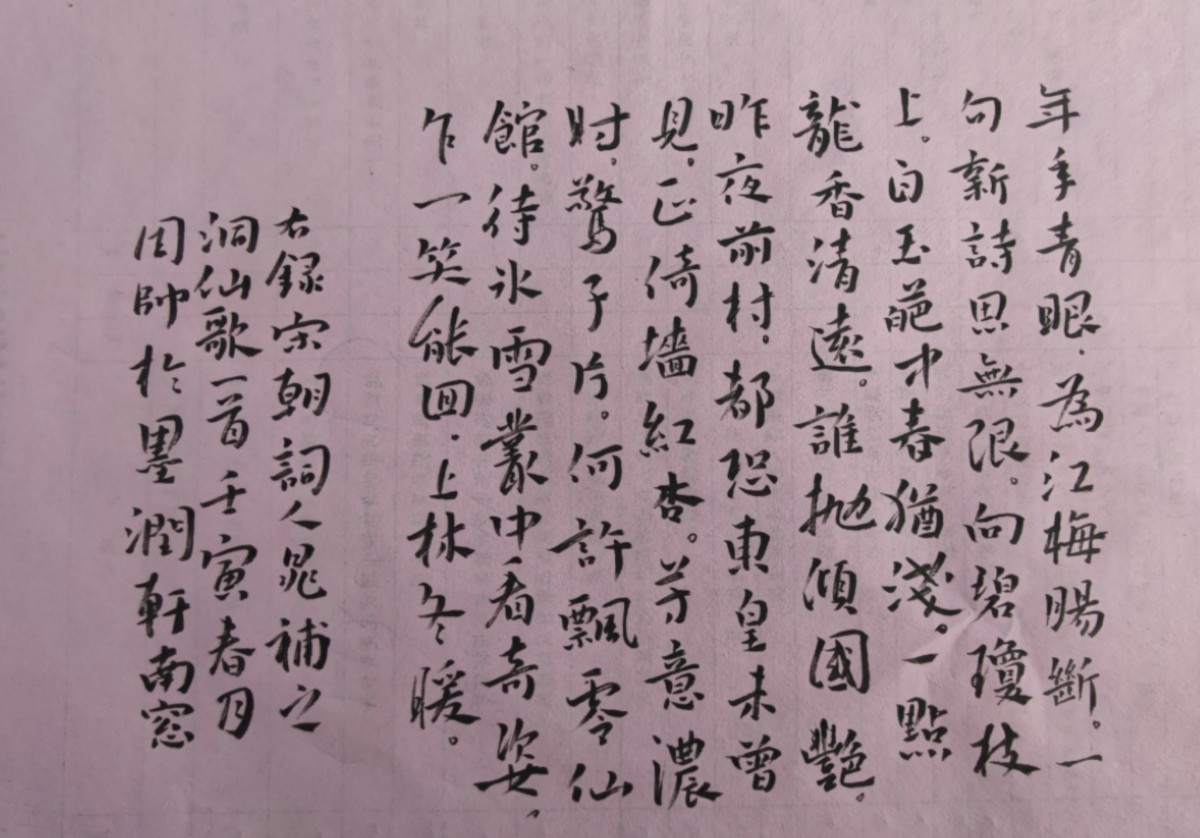 年年青眼．為江梅腸斷。一
句新詩思無限。向碧瓊枝
上。白玉葩中春猶淺。一點
龍香清遠。誰抛傾國艷。
昨夜前村．都恐東皇未曾
見．正倚墻紅杏。芳意濃
时．驚千片。何許飄零仙
館。待氷雪叢中看奇姿．
乍一笑能囬．上林冬暖。
右録宋朝詞人晁補之
洞仙歌一首壬寅春月
周帥於墨潤軒南窓